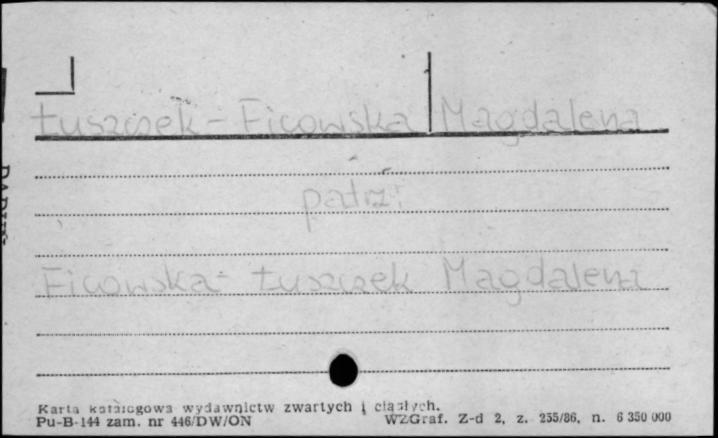 Łuszczek-Ficowska Magdalena
patrz:
Ficowska-Łuszczek Magdalena
Karta katalogowa wydawnictw zwartych i ciągłych.
Pu-B-144 zam. nr 446/DW/ON
WZGraf. Z-d 2, z. 255/86, n. 6 350 000